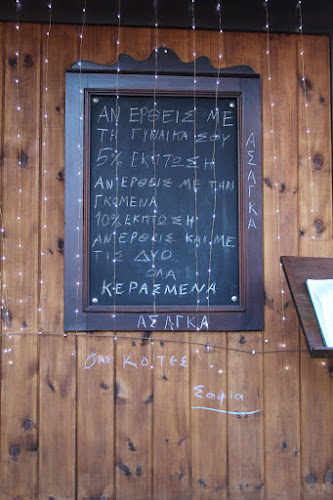 ΑΝ ΕΡΘΕΙΣ ΜΕ
ΤΗ ΓΥΝΑΙΚΑ ΣΟΥ
5% ΕΚΠΤΩΣΗ
ΑΝ ΕΡΘΕΙΣ ΜΕ ΤΗΝ
ΓΚΟΜΕΝΑ
10% ΕΚΠΤΩΣΗ
ΑΝ ΕΡΘΕΙΣ ΚΑΙ ΜΕ
ΤΙΣ ΔΥΟ..
ΟΛΑ
ΚΕΡΑΣΜΕΝΑ
ΑΣΑΓΚΑ
ΑΣΑΓΚΑ
Σοφια